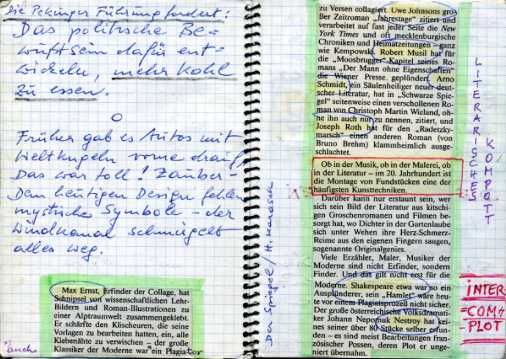 Die Pekinger Führung fordert:
Das politische Be-
wußtsein dafür ent-
wickeln, mehr Kohl
zu essen.
Früher gab es Autos mit
Weltkugeln vorne drauf.
Das war toll! Zauber-
Dem heutigen Design fehlen
mystische Symbole - der
Windkanal schmirgelt
alles weg.
Max Ernst, Erfinder der Collage, hat
Schnipsel von wissenschaftlichen Lehr-
Bildern und Roman-Illustrationen zu
einer Alptraumwelt zusammengeklebt.
Er schärfte den Klischeuren, die seine
Vorlagen zu bearbeiten hatten, ein, alle
Klebenähte zu verwischen – der große
Klassiker der Moderne war ein Plagiator
zu Versen collagiert. Uwe Johnsons gro-
ßer Zeitroman „Jahrestage" zitiert und
verarbeitet auf fast jeder Seite die New
York Times und oft mecklenburgische
Chroniken und Heimatzeitungen – ganz
wie Kempowski. Robert Musil hat für
die „Moosbrugger"-Kapitel seines Ro-
mans „Der Mann ohne Eigenschaften"
die Wiener Presse geplündert. Arno
Schmidt, ein Säulenheiliger neuer deut-
scher Literatur, hat in „Schwarze Spie-
gel" seitenweise einen verschollenen Ro-
man von Christoph Martin Wieland, oh-
ne ihn auch nur zu nennen, zitiert, und
Joseph Roth hat für den „Radetzky-
marsch" einen anderen Roman (von
Bruno Brehm) klammheimlich ausge-
schlachtet.
Ob in der Musik, ob in der Malerei, ob
in der Literatur – im 20. Jahrhundert ist
die Montage von Fundstücken eine der
häufigsten Kunsttechniken.
Darüber kann nur erstaunt sein, wer
sich sein Bild der Literatur aus kitschi-
gen Groschenromanen und Filmen be-
sorgt hat, wo Dichter in der Gartenlaube
sich unter Wehen ihre Herz-Schmerz-
Reime aus den eigenen Fingern saugen,
sogenannte Originalgenies.
Viele Erzähler, Maler, Musiker der
Moderne sind nicht Erfinder, sondern
Finder. Und das gilt nicht erst für die
Moderne. Shakespeare etwa war so ein
Ausplünderer, sein „Hamlet" wäre heu-
te vor einem Plagiatsprozeß nicht sicher.
Der große österreichische Volksdramati-
ker Johann Nepomuk Nestroy hat kei-
nes seiner über 80 Stücke selber erfun-
den – es sind meist Bearbeitungen fran-
zösischer Possen, deren Plot er unge-
niert übernahm.
LITERARISCHES
KOMPOTT
INTER=
=COM+
-PLOT